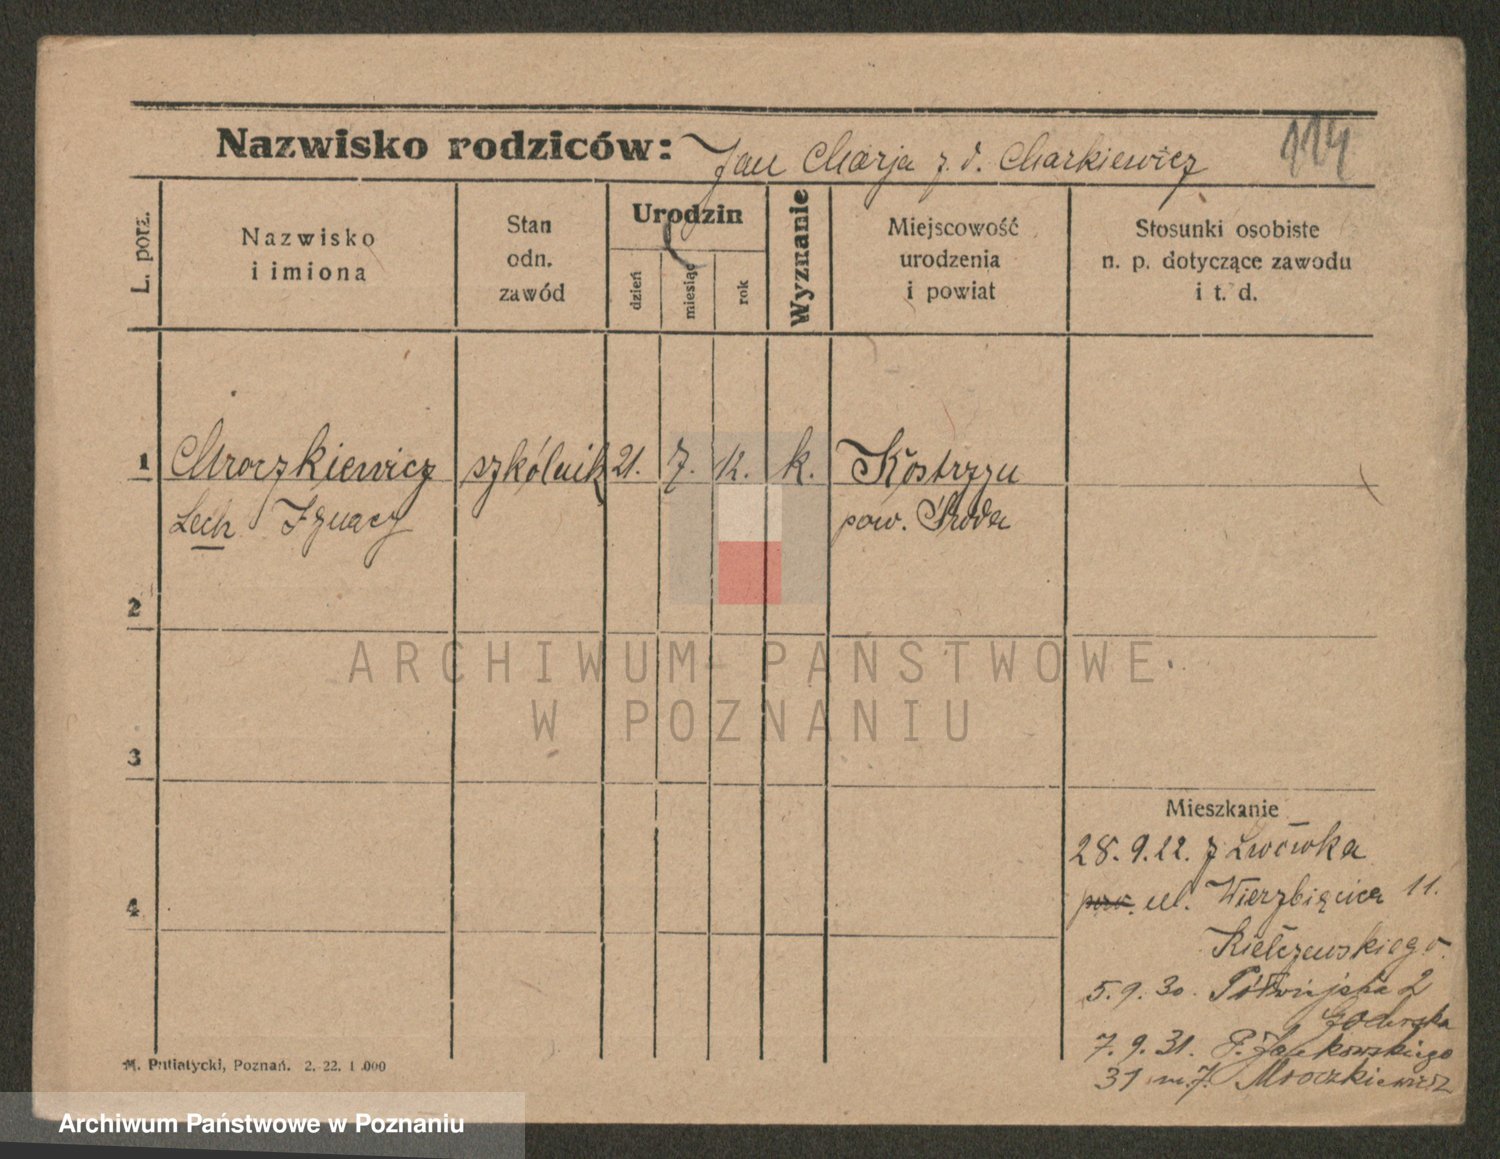 114
Nazwisko rodziców: Jan Marja z. d. Markiewicz
L. porz.
Nazwisko
i imiona
Stan
odn.
zawód
Urodzin
dzień
miesiąc
rok
Wyznanie
Miejscowość
urodzenia
i powiat
Stosunki osobiste
n. p. dotyczące zawodu
i t. d.
1 Mroczkiewicz szkólnik 21. 7. 12. k. Kostrzyn
Lech Ignacy pow. Środa
2
3
4
Mieszkanie
28. 9. 22. z Lwówka
pow. ul. Wierzbięcice 11.
Kielczewskiego.
5. 9. 30. 2
7. 9. 31. P. Jackowskiego
31 m. 7. Mroczkiewicz
M. Putiatycki, Poznań. 2. 22. 1 000
ARCHIWUM PAŃSTWOWE
W POZNANIU
Archiwum Państwowe w Poznaniu